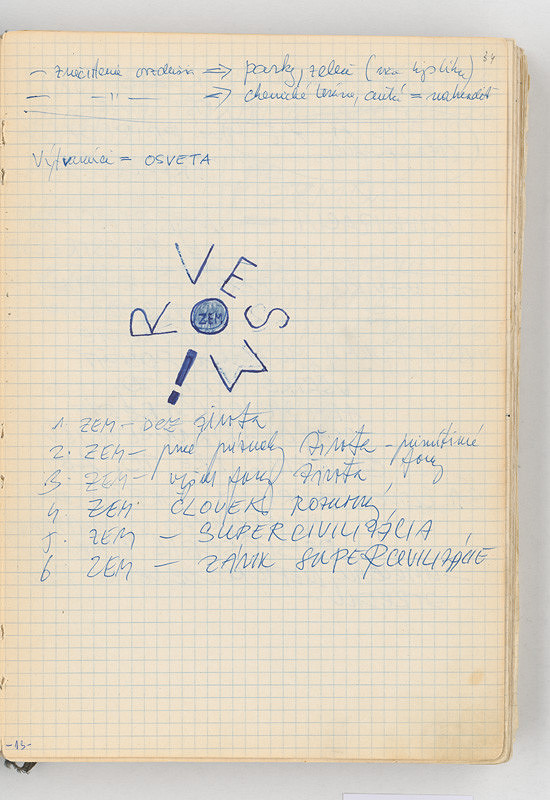 34
– znečistenie ovzdušia ⇒ parky, zeleň (viac kyslíka)
— –"– — ⇒ chemické továrne, autá = nahradiť
Výtvarníci = OSVETA
R V E S M !
ZEM
1 ZEM – bez života
2. ZEM – prvé príznaky života – primitívne
formy
3. ZEM – vyššie formy života
4. ZEM ČLOVEK, ROZUMNÝ
5. ZEM – SUPERCIVILIZÁCIA
6 ZEM – ZÁNIK SUPERCIVILIZÁCIE
-13-